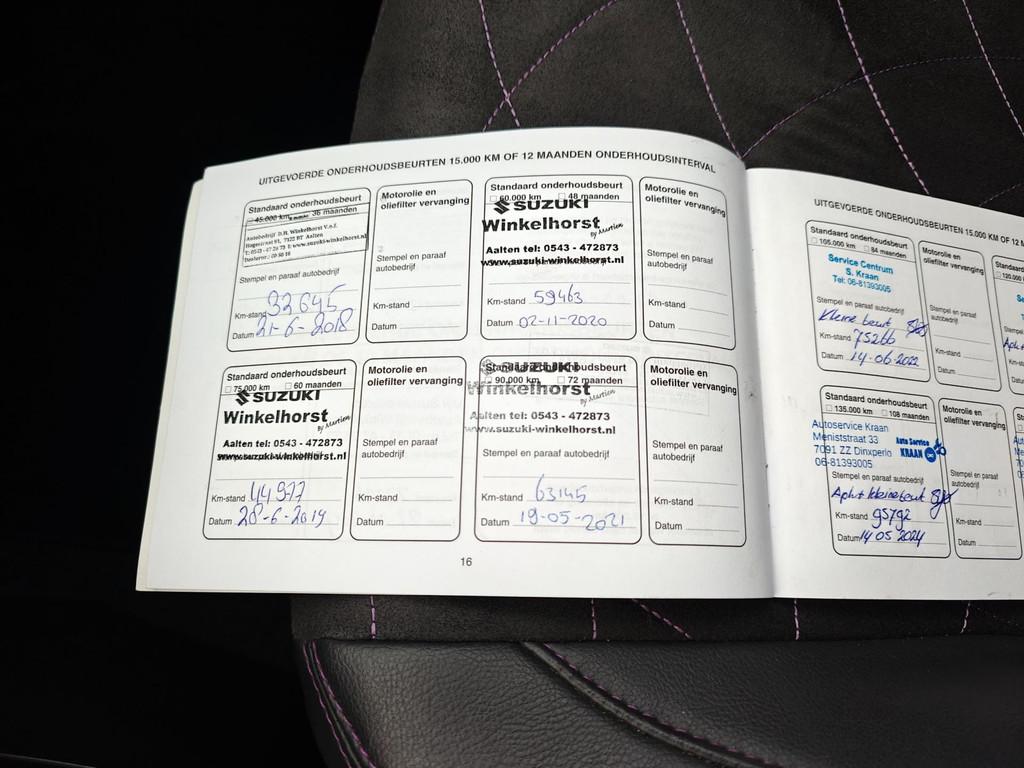 UITGEVOERDE ONDERHOUDSBEURTEN 15.000 KM OF 12 MAANDEN ONDERHOUDSINTERVAL
Standaard onderhoudsbeurt
45.000 km 36 maanden
Autobedrijf D.H. Winkelhorst V.o.f.
Hogestraat 81, 7122 BT Aalten
Stempel en paraaf autobedrijf
Km-stand 32645
Datum 21-6-2018
Motorolie en
oliefilter vervanging
Stempel en paraaf
autobedrijf
Km-stand
Datum
Standaard onderhoudsbeurt
60.000 km 48 maanden
SUZUKI
Winkelhorst
By Martien
Aalten tel: 0543 - 472873
www.suzuki-winkelhorst.nl
Stempel en paraaf autobedrijf
Km-stand 59463
Datum 02-11-2020
Motorolie en
oliefilter vervanging
Stempel en paraaf
autobedrijf
Km-stand
Datum
Standaard onderhoudsbeurt
75.000 km 60 maanden
SUZUKI
Winkelhorst
By Martien
Aalten tel: 0543 - 472873
www.suzuki-winkelhorst.nl
Km-stand 44977
Datum 28-6-2019
Motorolie en
oliefilter vervanging
Stempel en paraaf
autobedrijf
Km-stand
Datum
Standaard onderhoudsbeurt
90.000 km 72 maanden
SUZUKI
Winkelhorst
By Martien
Aalten tel: 0543 - 472873
www.suzuki-winkelhorst.nl
Stempel en paraaf autobedrijf
Km-stand 63145
Datum 19-05-2021
Motorolie en
oliefilter vervanging
Stempel en paraaf
autobedrijf
Km-stand
Datum
16
UITGEVOERDE ONDERHOUDSBEURTEN 15.000 KM OF 12 M
Standaard onderhoudsbeurt
105.000 km 84 maanden
Service Centrum
S. Kraan
Tel: 06-81393005
Stempel en paraaf autobedrijf
Kleine beurt
Km-stand 75266
Datum 14-06-2022
Motorolie en
oliefilter vervanging
Stempel en paraaf
autobedrijf
Km-stand
Datum
Standaard
120.000
Standaard onderhoudsbeurt
135.000 km 108 maanden
Autoservice Kraan
Meniststraat 33
7091 ZZ Dinxperlo
06-81393005
Auto Service
KRAAN
Stempel en paraaf autobedrijf
Apk + kleine beurt
Km-stand 95792
Datum 14 05 2024
Motorolie en
oliefilter vervanging
Stempel en paraaf
autobedrijf
Km-stand
Datum